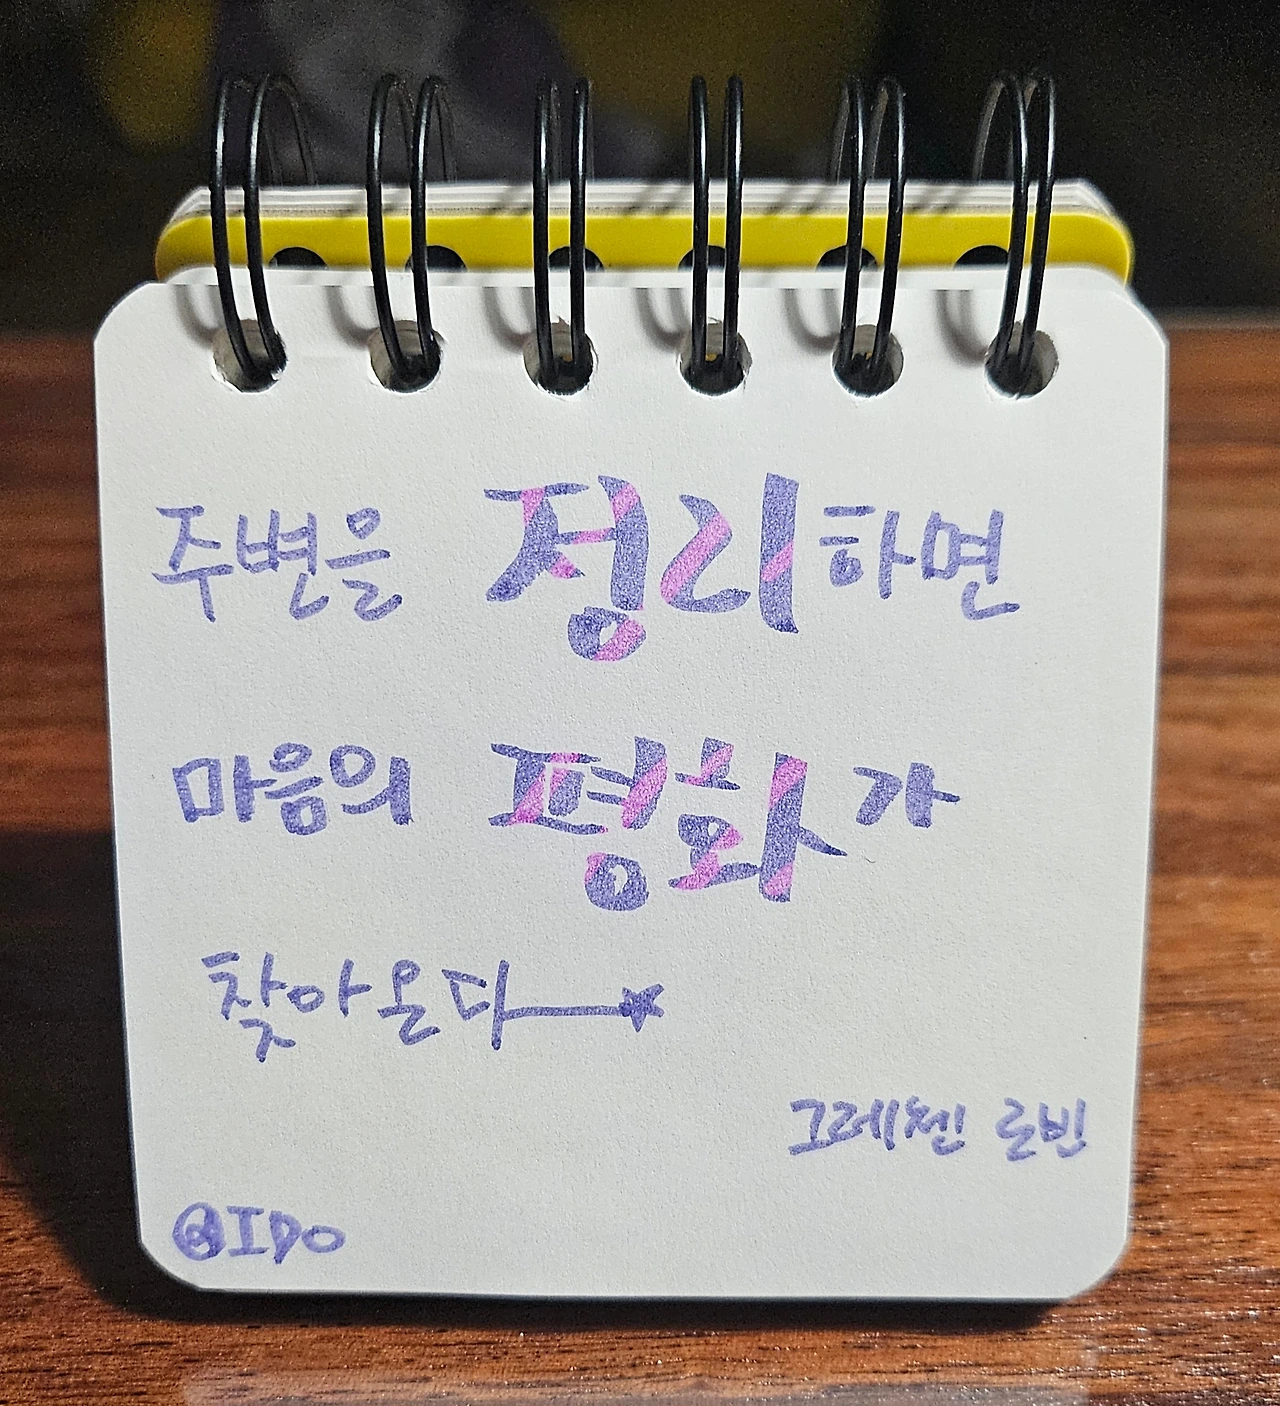 주변을 정리하면
마음의 평화가
찾아온다
그레첸 루빈
@IDO